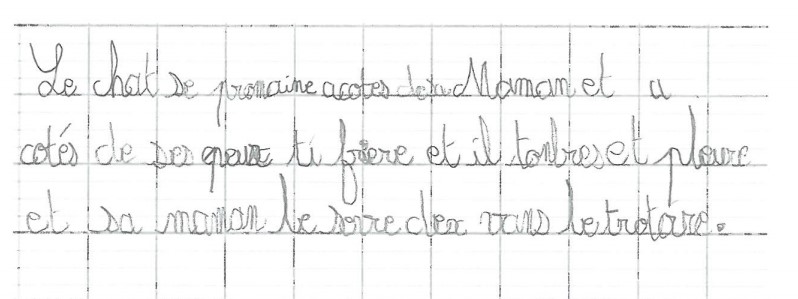 Le chat se promaine acotes de sa Maman et a
cotés de ses ti friere et il tonbres et pleure
et sa maman le serre devans le trotoire.